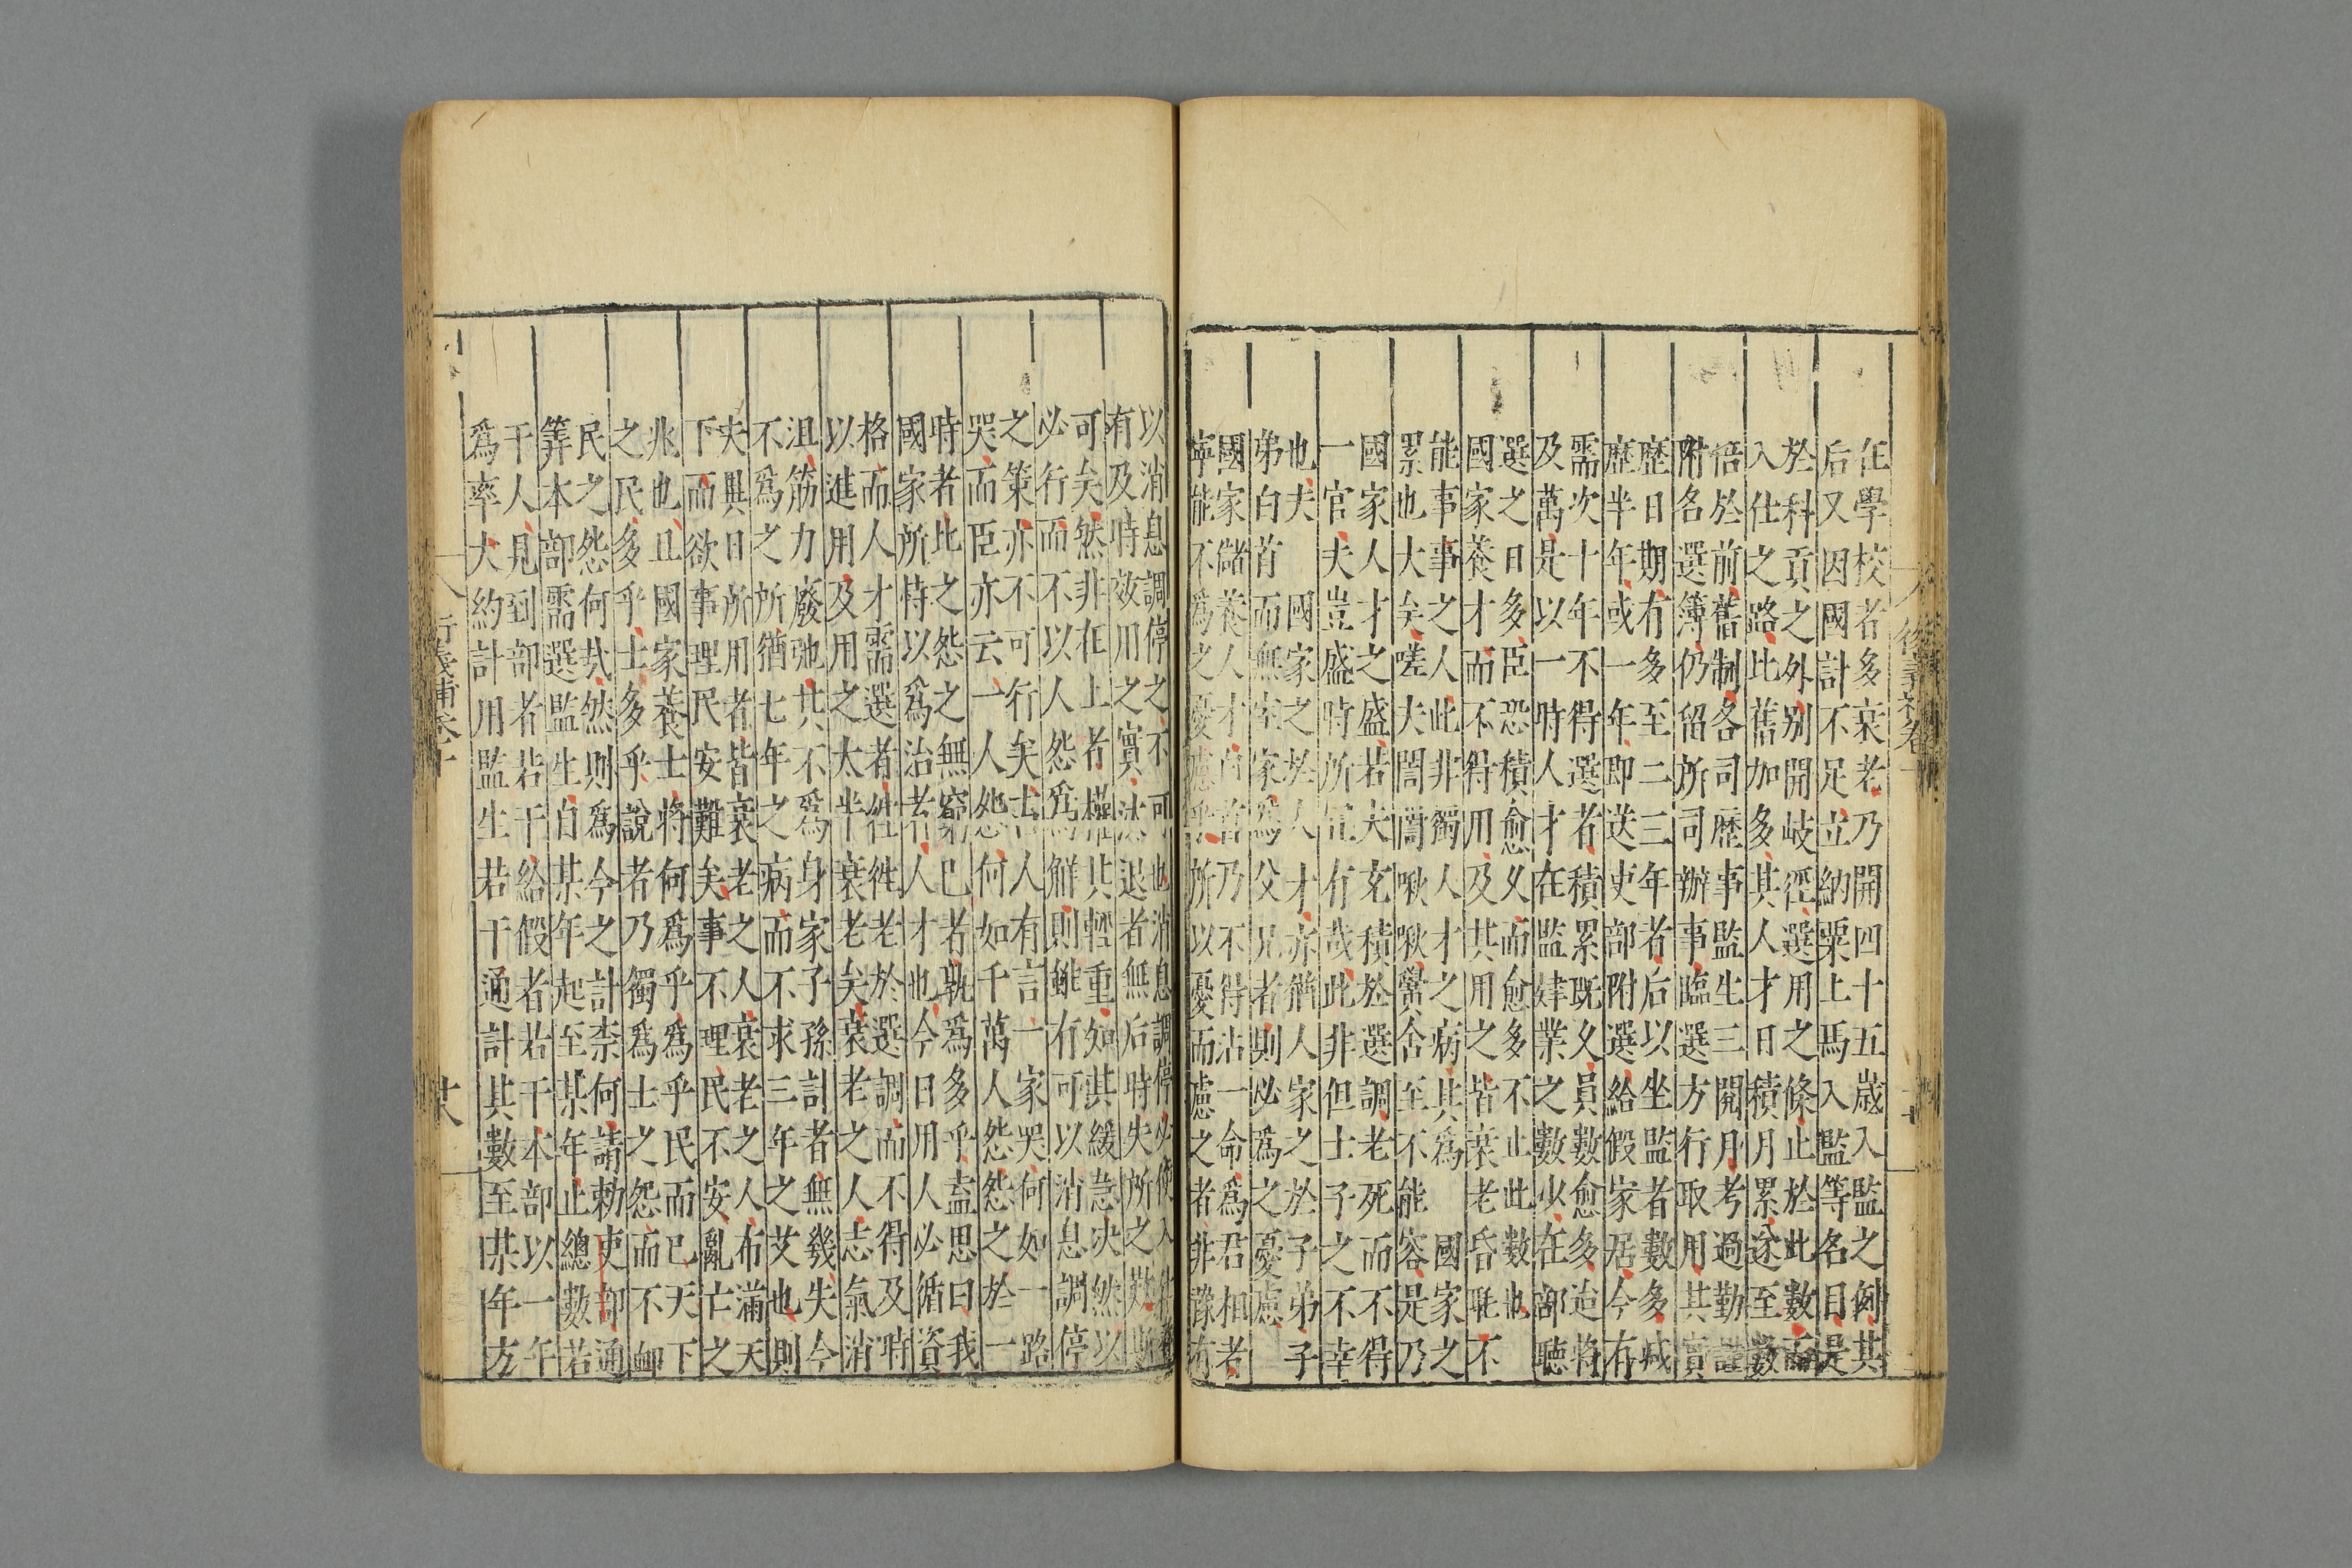 在學校者多衰老乃開四十五歲入監之例其
后又因國計不足立納粟上馬入監等名目是
於科貢之外別開岐徑選用之條止於此數而
入仕之路比舊加多其人才日積月累遂至數
倍於前舊制各司歷事監生三閱月考過勤謹
附各選簿仍留所司辦事臨選方行取用其實
歷日期有多至二三年者后以坐監者數多減
歷半年或一年即送吏部附選給假家居今有
需次十年不得選者積累既乆員數愈多迨將
及萬是以一時人才在監肄業之數少在部聽
選之日多臣恐積愈乆而愈多不止此數也
國家養才而不得用及其用之皆衰老昏眊不
能事事之人此非獨人才之病其為國家之
累也大矣嗟夫誾誾啾啾黌舍至不能容是乃
國家人才之盛若夫充積於選調老死而不得
一官夫豈盛時所宜有哉此非但士子之不幸
也夫國家之於人才亦猶人家之於子弟子
弟白首而無室家為父兄者則必為之憂慮
國家儲養人才白首乃不得沾一命為君相者
寧能不為之憂慮乎所以憂而慮之者非豫有
以消息調停之不可也消息調停必使
有及時效用之實沈退者無后時失所之歎斯
可矣然非在上者權其輕重如其緩急決然以
必行而不以人怨為觧則雖有可以消息調停
之策亦不可行矣古人有言一家哭何如一路
哭而臣亦云一人怨何如千萬人怨怨之於一
時者比之怨之無窮已者孰爲多乎盍思曰我
國家所恃以爲治者人才也今日用人必循資
格而人才需選者往徃老於選調而不得及時
以進用及用之太半衰老矣衰老之人志氣消
沮筋力廢弛其不爲身家子孫計者無幾失今
不爲之所猶七年之病而不求三年之艾也則
夫與日所用者皆衰老之人衰老之人布滿天
下而欲事理民安難矣事不理民不安亂亡之
兆也且國家養士將何爲乎爲乎民而已天下
之民多乎士多乎說者乃獨爲士之怨而不卹
民之怨何㢤然則爲今之計柰何請勅吏部通
筭本部需選監生自某年起至某年止總數若
干人見到部者若干給假者若干本部以一年
爲率大約計用監生若干通計其數至某年方